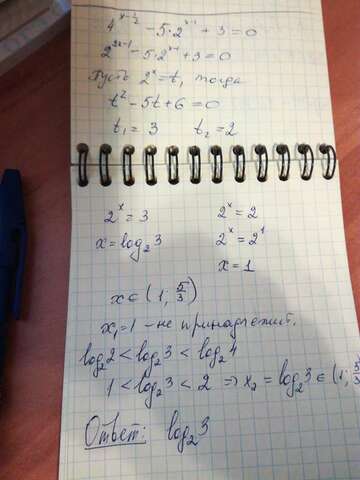 4^(x-1/2) - 5·2^(x-1) + 3 = 0
2^(2x-1) - 5·2^(x-1) + 3 = 0
Пусть 2^x = t, тогда
t² - 5t + 6 = 0
t₁ = 3 t₂ = 2
2^x = 3 2^x = 2
x = log₂3 2^x = 2^1
x = 1
x ∈ (1; 5/3)
x₁ = 1 – не принадлежит.
log₂2 < log₂3 < log₂4
1 < log₂3 < 2 ⇒ x₂ = log₂3 ∈ (1; 5/3
Ответ: log₂3